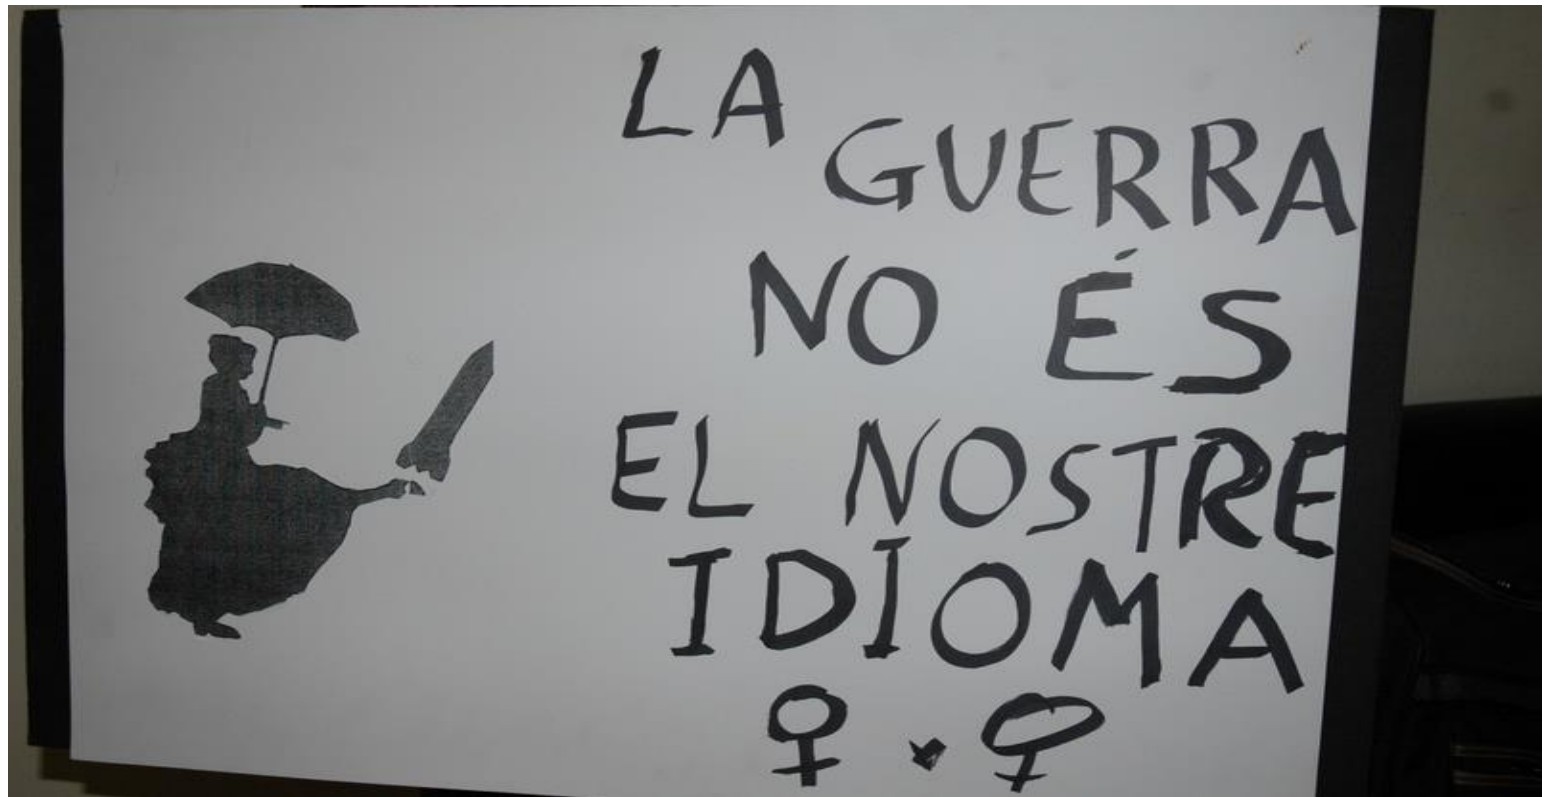 LA
GUERRA
NO ÉS
EL NOSTRE
IDIOMA